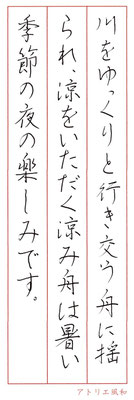 川をゆっくりと行き交う舟に揺
られ、涼をいただく涼み舟は暑い
季節の夜の楽しみです。
アトリエ風和